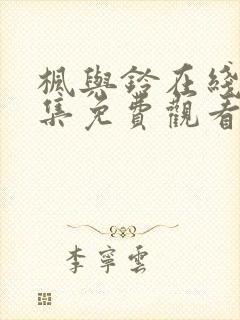 楓與鈴在綫
集免費觀看
李寧雲